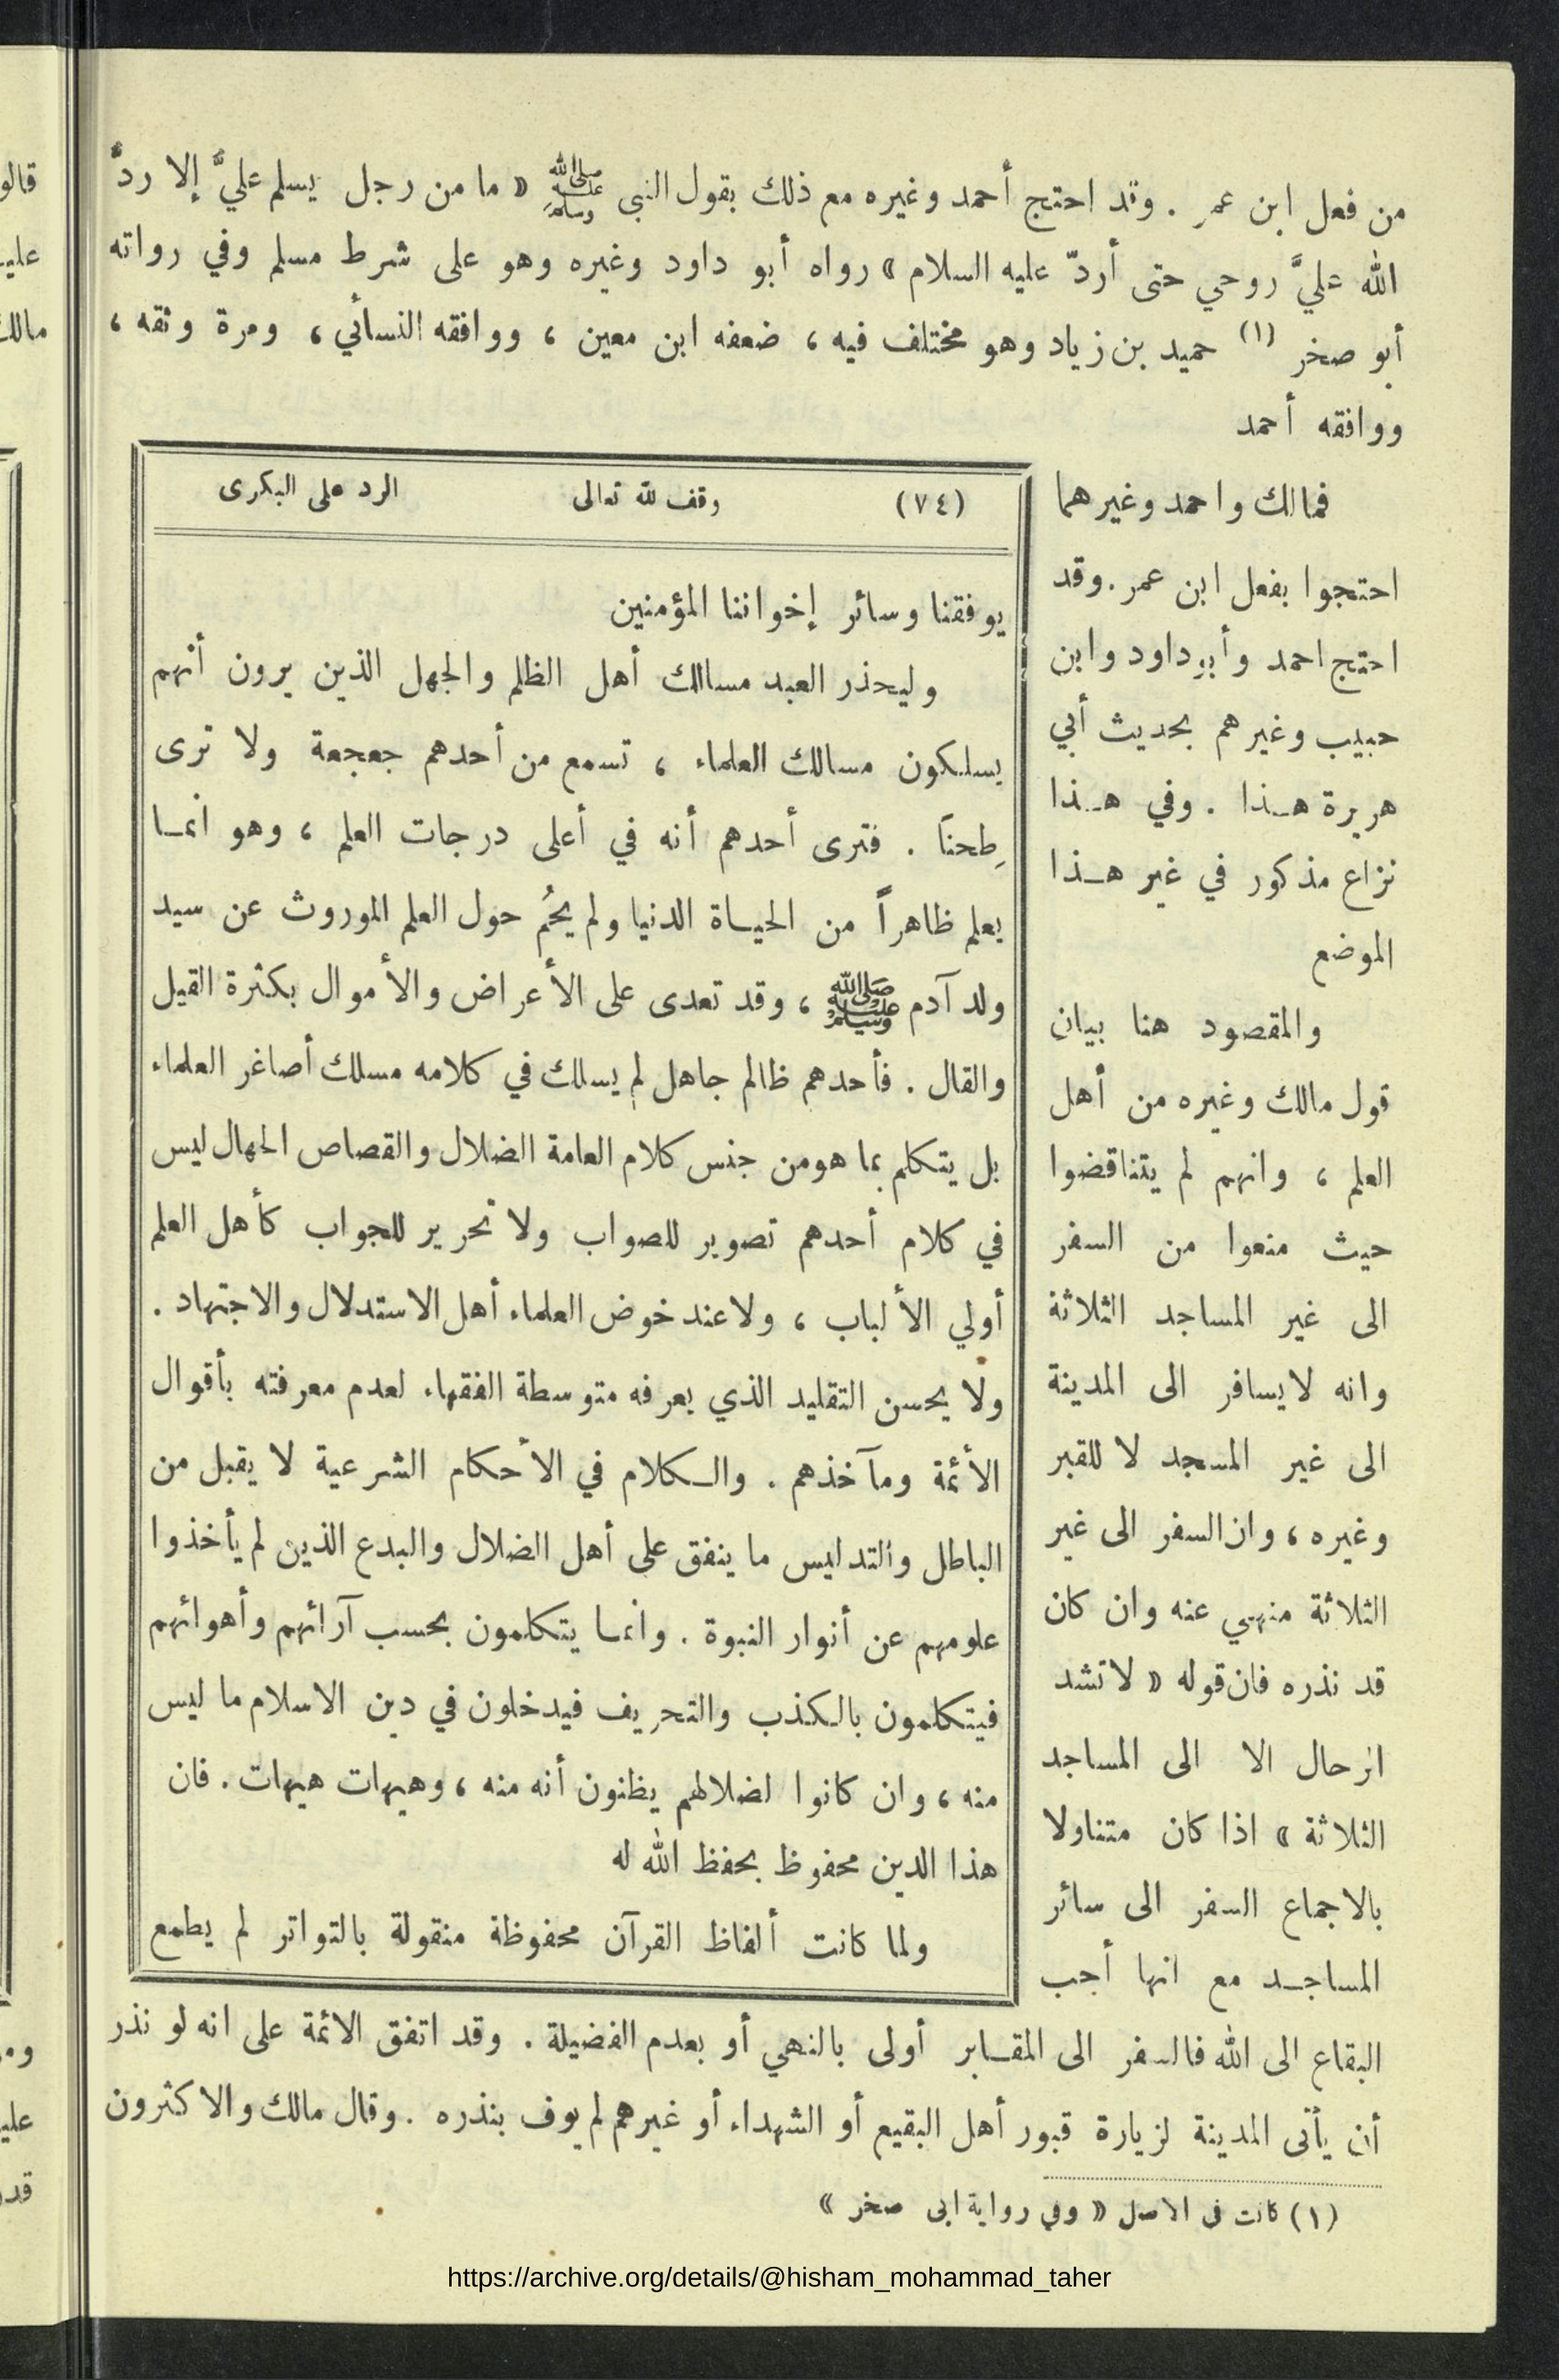 من فعل ابن عمر . وقد احتج أحمد وغيره مع ذلك بقول النبى ﷺ « ما من رجل يسلم عليَّ إلا ردَّ
الله عليَّ روحي حتى أردّ عليه السلام » رواه أبو داود وغيره وهو على شرط مسلم وفي رواته
أبو صخر (١) حميد بن زياد وهو مختلف فيه ، ضعفه ابن معين ، ووافقه النسائي ، ومرة وثقه ،
ووافقه أحمد
فمالك واحمد وغيرهما
احتجوا بفعل ابن عمر . وقد
احتج احمد وأبو داود وابن
حبيب وغيرهم بحديث أبي
هريرة هـذا . وفي هـذا
نزاع مذكور في غير هـذا
الموضع
والمقصود هنا بيان
قول مالك وغيره من أهل
العلم ، وانهم لم يتناقضوا
حيث منعوا من السفر
الى غير المساجد الثلاثة
وانه لا يسافر الى المدينة
الى غير المسجد لا للقبر
وغيره ، وان السفر الى غير
الثلاثة منهي عنه وان كان
قد نذره فان قوله « لا تشد
الرحال الا الى المساجد
الثلاثة » اذا كان متناولا
بالاجماع السفر الى سائر
المساجـد مع انها أحب
البقاع الى الله فالسفر الى المقـابر أولى بالنهي أو بعدم الفضيلة . وقد اتفق الائمة على انه لو نذر
أن يأتى المدينة لزيارة قبور أهل البقيع أو الشهداء أو غيرهم لم يوف بنذره . وقال مالك والاكثرون
(١) كانت فى الاصل « وفي رواية ابى صخر »
(٧٤) وقف لله تعالى الرد على البكرى
يوفقنا وسائر إخواننا المؤمنين
وليحذر العبد مسالك أهل الظلم والجهل الذين يرون أنهم
يسلكون مسالك العلماء ، تسمع من أحدهم جعجعة ولا ترى
طِحنًا . فترى أحدهم أنه في أعلى درجات العلم ، وهو انمـا
يعلم ظاهراً من الحيـاة الدنيا ولم يحُم حول العلم الموروث عن سيد
ولد آدم ﷺ ، وقد تعدى على الأعراض والأموال بكثرة القيل
والقال . فأحدهم ظالم جاهل لم يسلك في كلامه مسلك أصاغر العلماء
بل يتكلم بما هو من جنس كلام العامة الضلال والقصاص الجهال ليس
في كلام أحدهم تصوير للصواب ولا تحرير للجواب كأهل العلم
أولي الألباب ، ولا عند خوض العلماء أهل الاستدلال والاجتهاد .
ولا يحسن التقليد الذي يعرفه متوسطة الفقهاء لعدم معرفته بأقوال
الأئمة ومآخذهم . والـكلام في الأحكام الشرعية لا يقبل من
الباطل والتدليس ما ينفق على أهل الضلال والبدع الذين لم يأخذوا
علومهم عن أنوار النبوة . وانمـا يتكلمون بحسب آرائهم وأهوائهم
فيتكلمون بالـكذب والتحريف فيدخلون في دين الاسلام ما ليس
منه ، وان كانوا لضلالهم يظنون أنه منه ، وهيهات هيهات . فان
هذا الدين محفوظ بحفظ الله له
ولما كانت ألفاظ القرآن محفوظة منقولة بالتواتر لم يطمع
https://archive.org/details/@hisham_mohammad_taher